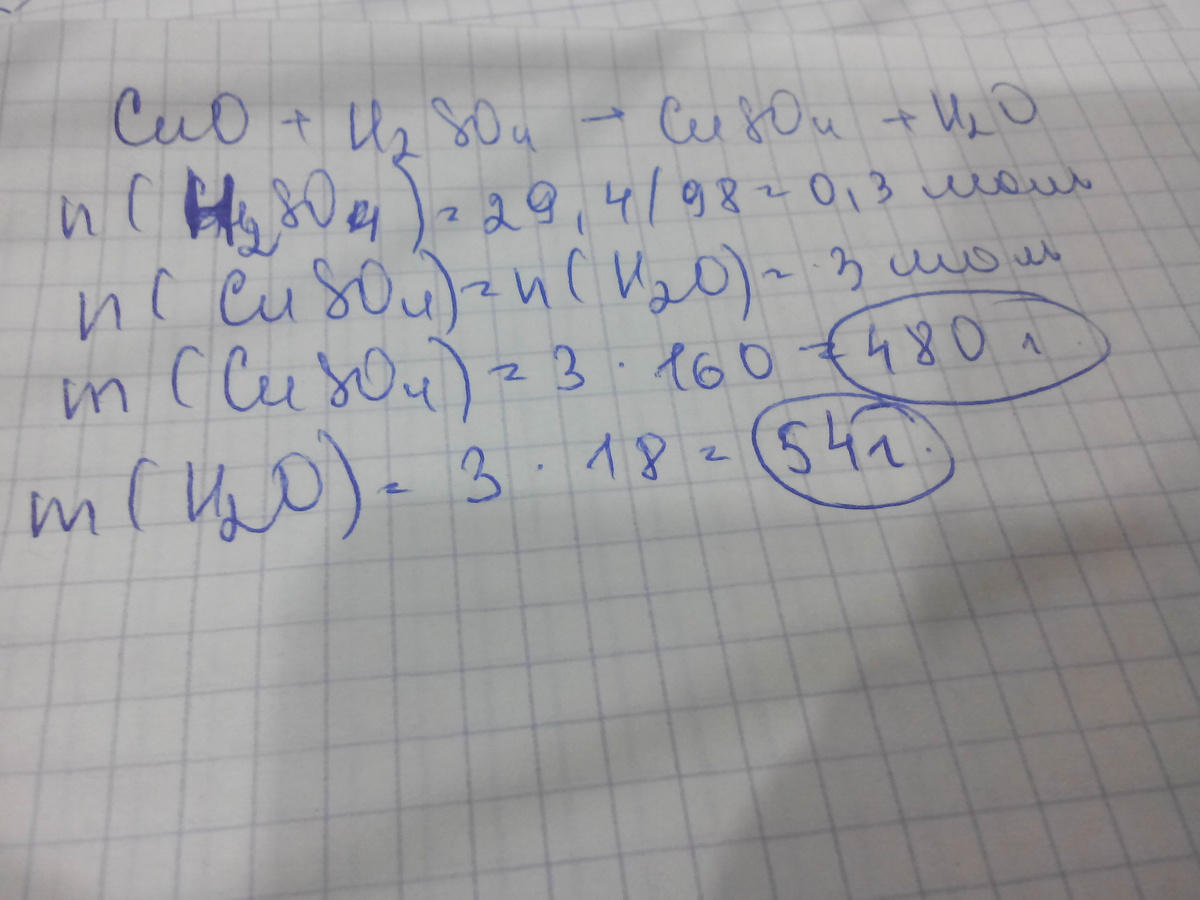 CuO + H₂SO₄ → CuSO₄ + H₂O
n(H₂SO₄) = 29,4/98 = 0,3 моль
n(CuSO₄) = n(H₂O) = 3 моль
m(CuSO₄) = 3 · 160 = 480 г.
m(H₂O) = 3 · 18 = 54 г.